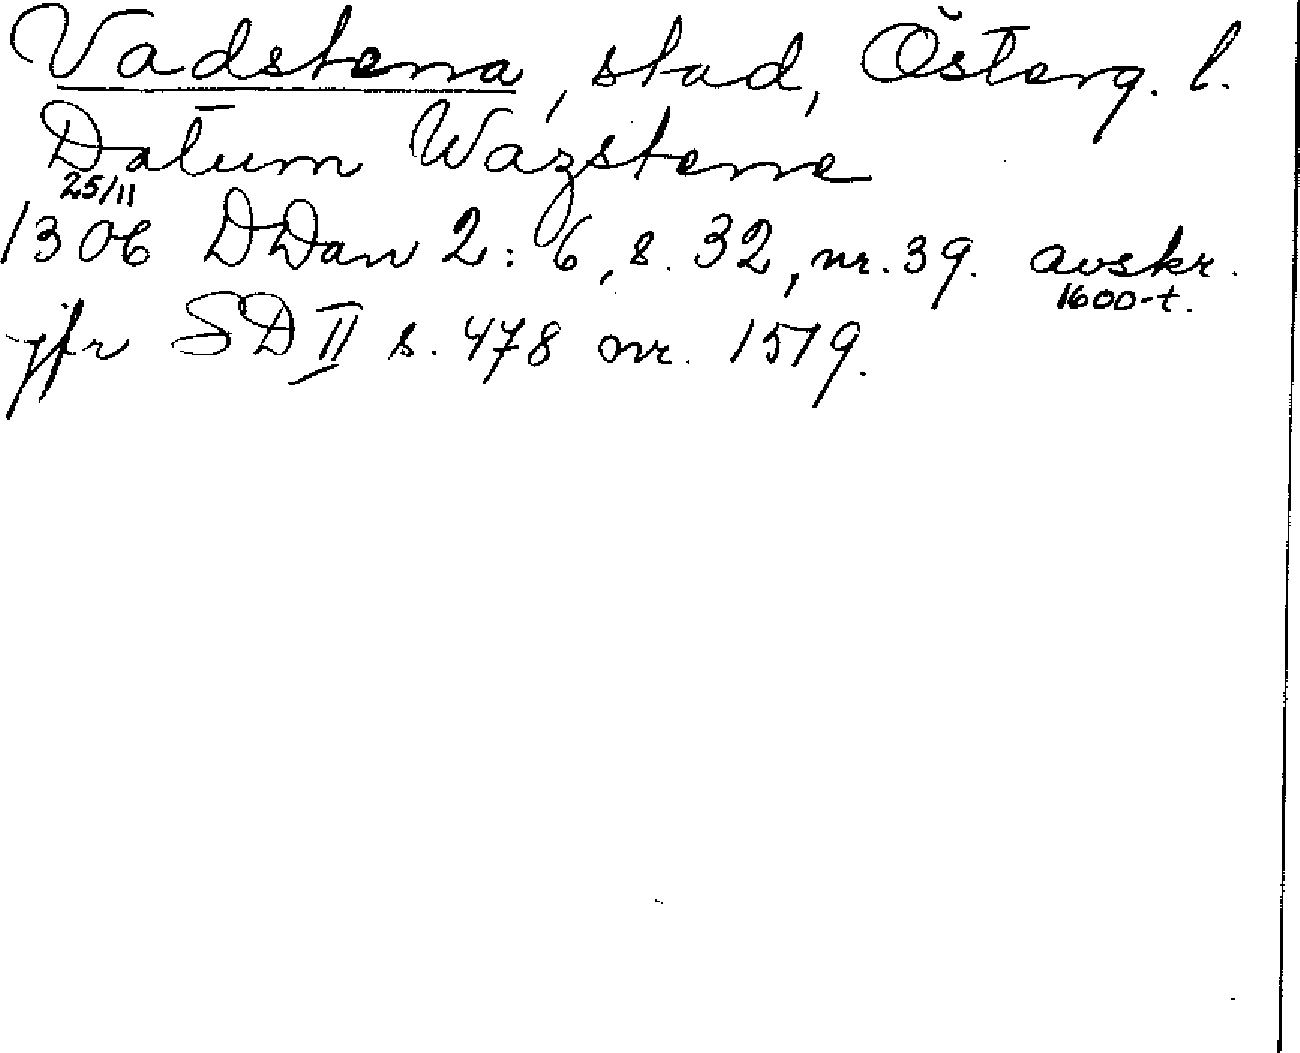 Vadstena, stad, Österg. l.
Datum Wazstene
25/11
1306 DDan 2:6, s. 32, nr. 39. avskr.
1600-t.
jfr SD II s. 478 nr. 1519.